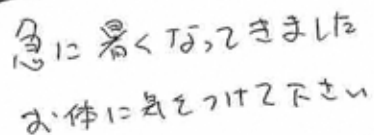 急に暑くなってきました
お体に気をつけて下さい